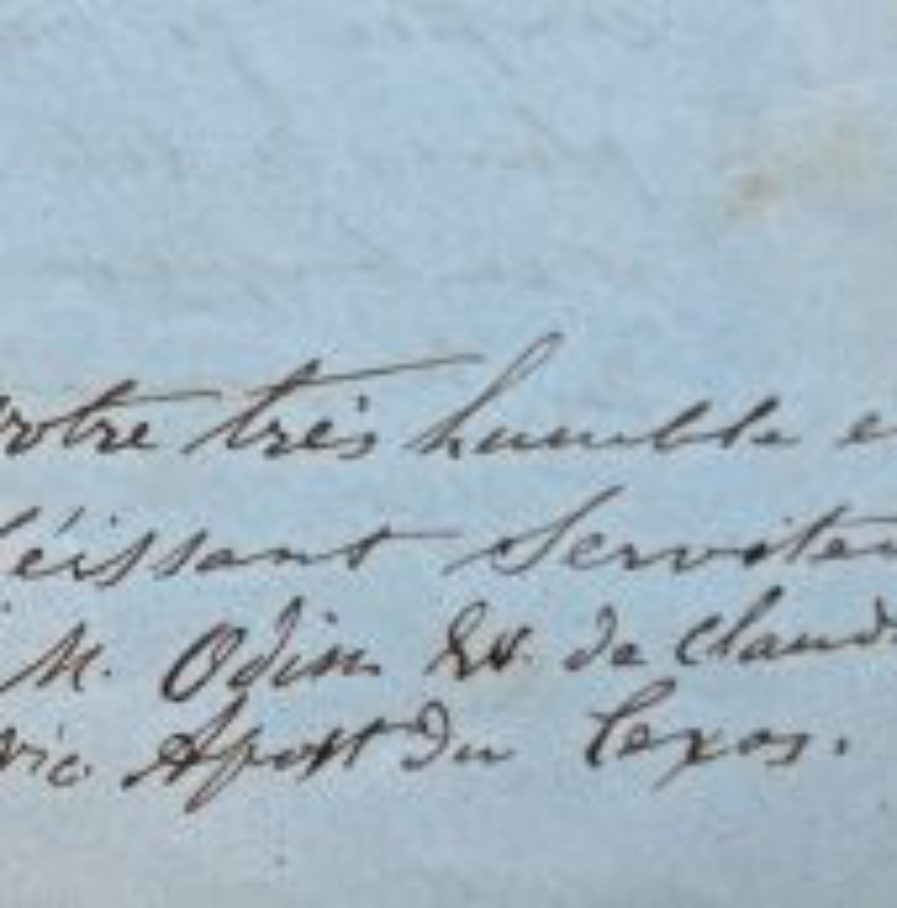 votre très humble e
éissant Serviteu
M. Odin Ev. de Claud.
vic. Apost du Texas.